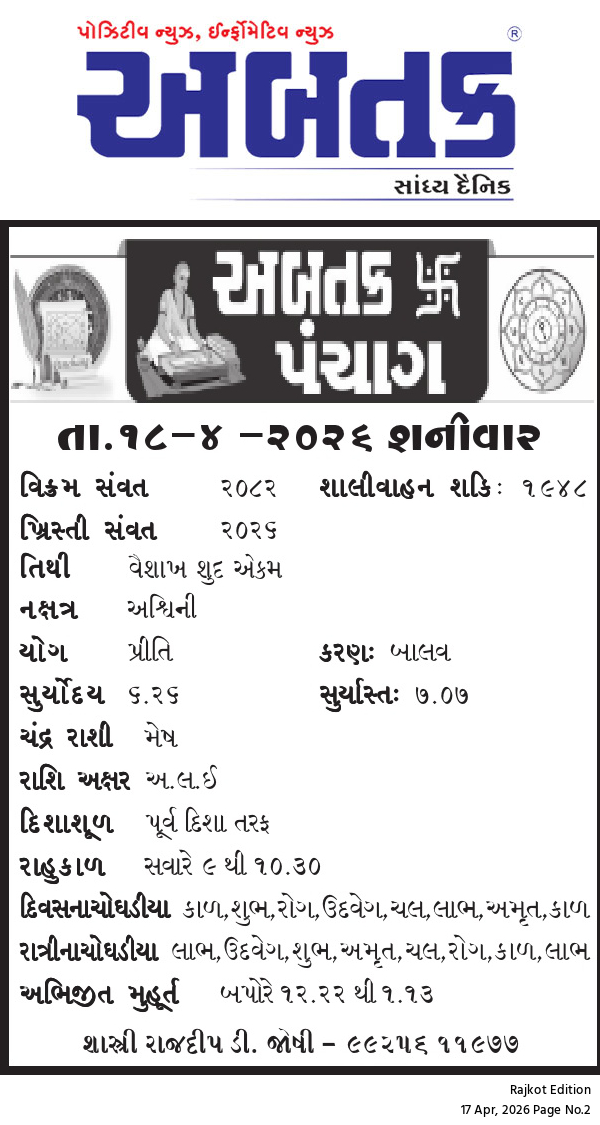 પોઝિટીવ ન્યુઝ, ઈન્ફોર્મેટિવ ન્યુઝ
અબતક ®
સાંધ્ય દૈનિક
અબતક
પંચાગ
તા.૧૮-૪ -૨૦૨૬ શનીવાર
વિક્રમ સંવત ૨૦૮૨ શાલીવાહન શકિ: ૧૯૪૮
ખ્રિસ્તી સંવત ૨૦૨૬
તિથી વૈશાખ શુદ એકમ
નક્ષત્ર અશ્વિની
યોગ પ્રીતિ કરણ: બાલવ
સુર્યોદય ૬.૨૬ સુર્યાસ્ત: ૭.૦૭
ચંદ્ર રાશી મેષ
રાશિ અક્ષર અ.લ.ઈ
દિશાશૂળ પૂર્વ દિશા તરફ
રાહુકાળ સવારે ૯ થી ૧૦.૩૦
દિવસનાચોઘડીયા કાળ,શુભ,રોગ,ઉદવેગ,ચલ,લાભ,અમૃત,કાળ
રાત્રીનાચોઘડીયા લાભ,ઉદવેગ,શુભ,અમૃત,ચલ,રોગ,કાળ,લાભ
અભિજીત મુહૂર્ત બપોરે ૧૨.૨૨ થી ૧.૧૩
શાસ્ત્રી રાજદીપ ડી. જોષી – ૯૯૨૫૬ ૧૧૯૭૭
Rajkot Edition
17 Apr, 2026 Page No.2